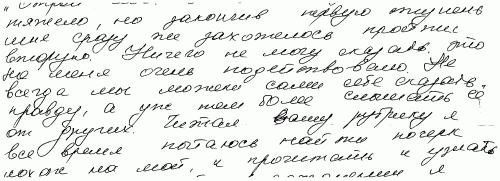 тяжело, но закончив первую ступень
мне сразу же захотелось пройти
вторую. Ничего не могу сказать, это
на меня очень подействовало. Не
всегда мы можем сами себе сказать
правду, а уж тем более слышать её
от других. Читая вашу рубрику я
все время пытаюсь найти почерк
похож на мой, и прочитать и узнать
я